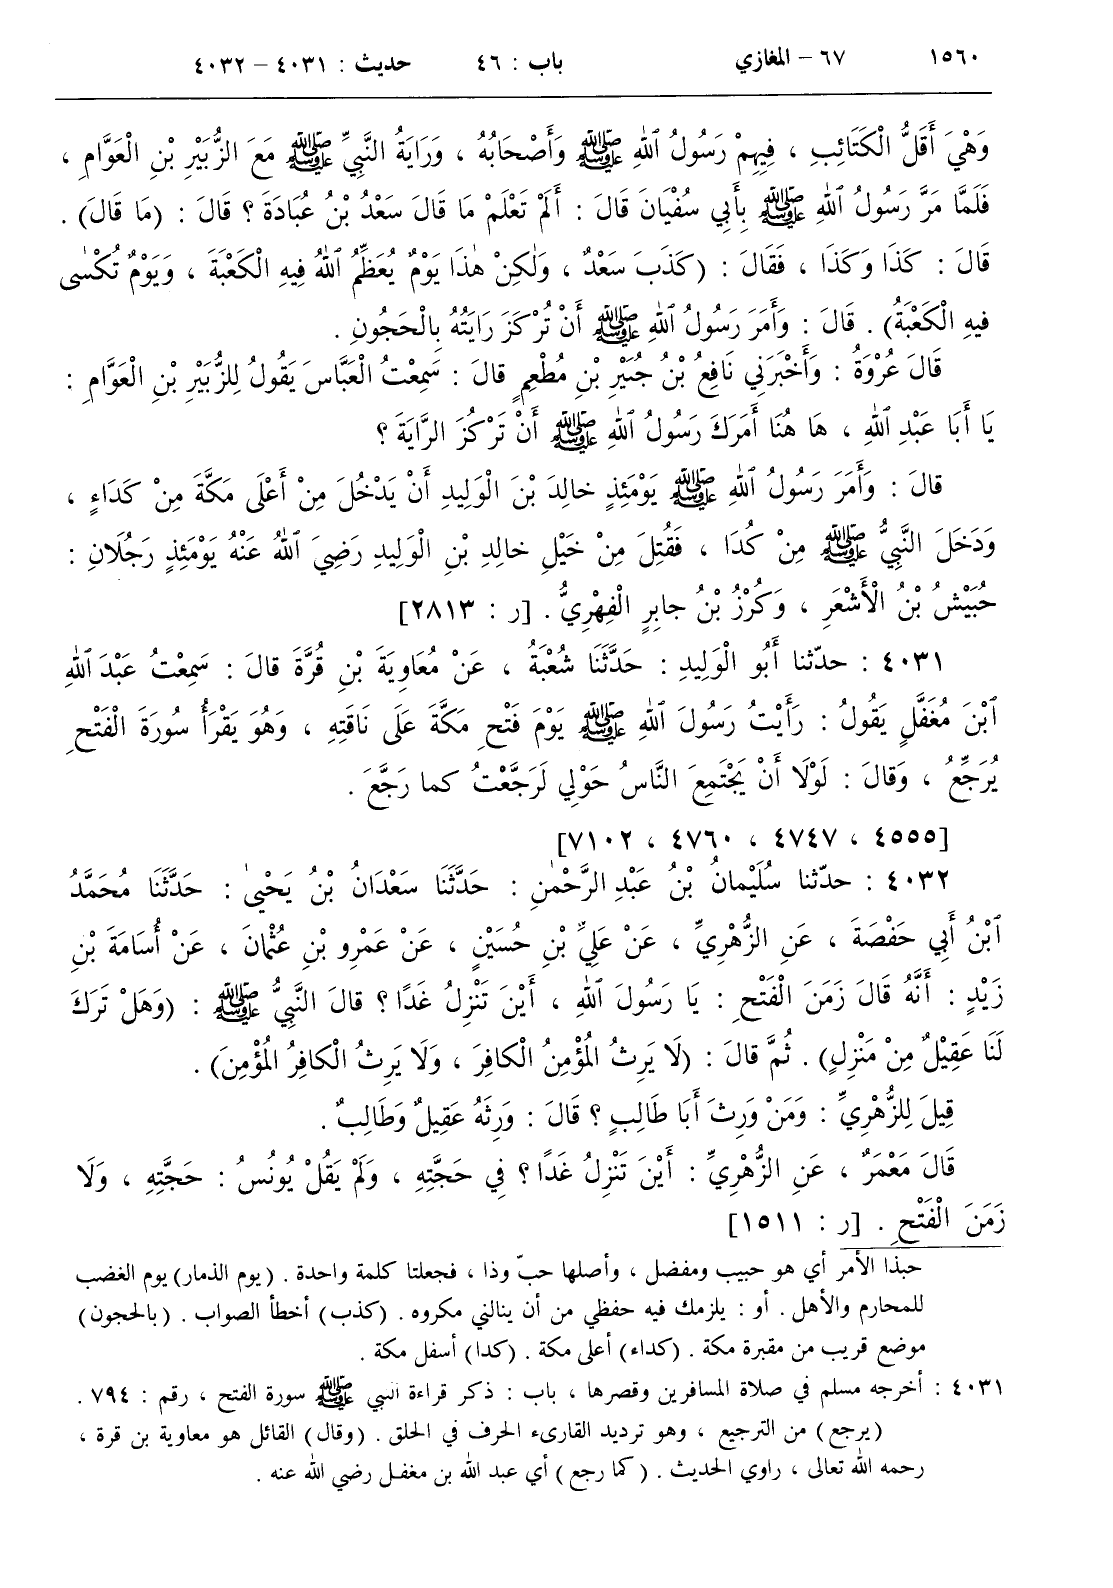 ١٥٦٠ ٦٧ – المغازي باب : ٤٦ حديث : ٤٠٣١ – ٤٠٣٢
وَهْيَ أَقَلُّ الْكَتَائِبِ ، فِيهِمْ رَسُولُ ٱللهِ ﷺ وَأَصْحَابُهُ ، وَرَايَةُ النَّبِيِّ ﷺ مَعَ الزُّبَيْرِ بْنِ الْعَوَّامِ ،
فَلَمَّا مَرَّ رَسُولُ ٱللهِ ﷺ بِأَبِي سُفْيَانَ قَالَ : أَلَمْ تَعْلَمْ ما قَالَ سَعْدُ بْنُ عُبَادَةَ ؟ قَالَ : (مَا قَالَ) .
قَالَ : كَذَا وَكَذَا ، فَقَالَ : (كَذَبَ سَعْدٌ ، وَلٰكِنْ هٰذَا يَوْمٌ يُعَظِّمُ ٱللهُ فِيهِ الْكَعْبَةَ ، وَيَوْمٌ تُكْسٰى
فِيهِ الْكَعْبَةُ) . قَالَ : وَأَمَرَ رَسُولُ ٱللهِ ﷺ أَنْ تُرْكَزَ رَايَتُهُ بِالْحَجُونِ .
قَالَ عُرْوَةُ : وَأَخْبَرَنِي نَافِعُ بْنُ جُبَيْرِ بْنِ مُطْعِمٍ قالَ : سَمِعْتُ الْعَبَّاسَ يَقُولُ لِلزُّبَيْرِ بْنِ الْعَوَّامِ :
يَا أَبَا عَبْدِ ٱللهِ ، هَا هُنَا أَمَرَكَ رَسُولُ ٱللهِ ﷺ أَنْ تَرْكُزَ الرَّايَةَ ؟
قالَ : وَأَمَرَ رَسُولُ ٱللهِ ﷺ يَوْمَئِذٍ خالِدَ بْنَ الْوَلِيدِ أَنْ يَدْخُلَ مِنْ أَعْلَى مَكَّةَ مِنْ كَدَاءٍ ،
وَدَخَلَ النَّبِيُّ ﷺ مِنْ كُدَا ، فَقُتِلَ مِنْ خَيْلِ خالِدِ بْنِ الْوَلِيدِ رَضِيَ ٱللهُ عَنْهُ يَوْمَئِذٍ رَجُلَانِ :
حُبَيْشُ بْنُ الْأَشْعَرِ ، وَكُرْزُ بْنُ جابِرٍ الْفِهْرِيُّ . [ر : ٢٨١٣]
٤٠٣١ : حدّثنا أَبُو الْوَلِيدِ : حَدَّثَنَا شُعْبَةُ ، عَنْ مُعَاوِيَةَ بْنِ قُرَّةَ قالَ : سَمِعْتُ عَبْدَ ٱللهِ
ٱبْنَ مُغَفَّلٍ يَقُولُ : رَأَيْتُ رَسُولَ ٱللهِ ﷺ يَوْمَ فَتْحِ مَكَّةَ عَلَى نَاقَتِهِ ، وَهُوَ يَقْرَأُ سُورَةَ الْفَتْحِ
يُرَجِّعُ ، وَقالَ : لَوْلَا أَنْ يَجْتَمِعَ النَّاسُ حَوْلِي لَرَجَّعْتُ كما رَجَّعَ .
[٤٥٥٥ ، ٤٧٤٧ ، ٤٧٦٠ ، ٧١٠٢]
٤٠٣٢ : حدّثنا سُلَيْمانُ بْنُ عَبْدِ الرَّحْمٰنِ : حَدَّثَنَا سَعْدَانُ بْنُ يَحْيىٰ : حَدَّثَنَا مُحَمَّدُ
ٱبْنُ أَبِي حَفْصَةَ ، عَنِ الزُّهْرِيِّ ، عَنْ عَلِيِّ بْنِ حُسَيْنٍ ، عَنْ عَمْرِو بْنِ عُثْمانَ ، عَنْ أُسَامَةَ بْنِ
زَيْدٍ : أَنَّهُ قَالَ زَمَنَ الْفَتْحِ : يَا رَسُولَ ٱللهِ ، أَيْنَ تَنْزِلُ غَدًا ؟ قالَ النَّبِيُّ ﷺ : (وَهَلْ تَرَكَ
لَنَا عَقِيلٌ مِنْ مَنْزِلٍ) . ثُمَّ قالَ : (لَا يَرِثُ الْمُؤْمِنُ الْكافِرَ ، وَلَا يَرِثُ الْكافِرُ الْمُؤْمِنَ) .
قِيلَ لِلزُّهْرِيِّ : وَمَنْ وَرِثَ أَبَا طَالِبٍ ؟ قَالَ : وَرِثَهُ عَقِيلٌ وَطَالِبٌ .
قَالَ مَعْمَرٌ ، عَنِ الزُّهْرِيِّ : أَيْنَ تَنْزِلُ غَدًا ؟ فِي حَجَّتِهِ ، وَلَمْ يَقُلْ يُونُسُ : حَجَّتِهِ ، وَلَا
زَمَنَ الْفَتْحِ . [ر : ١٥١١]
حبذا الأمر أي هو حبيب ومفضل ، وأصلها حبّ وذا ، فجعلتا كلمة واحدة . (يوم الذمار) يوم الغضب
للمحارم والأهل . أو : يلزمك فيه حفظي من أن ينالني مكروه . (كذب) أخطأ الصواب . (بالحجون)
موضع قريب من مقبرة مكة . (كداء) أعلى مكة . (كدا) أسفل مكة .
٤٠٣١ : أخرجه مسلم في صلاة المسافرين وقصرها ، باب : ذكر قراءة النبي ﷺ سورة الفتح ، رقم : ٧٩٤ .
(يرجع) من الترجيع ، وهو ترديد القارىء الحرف في الحلق . (وقال) القائل هو معاوية بن قرة ،
رحمه الله تعالى ، راوي الحديث . (كما رجع) أي عبد الله بن مغفل رضي الله عنه .